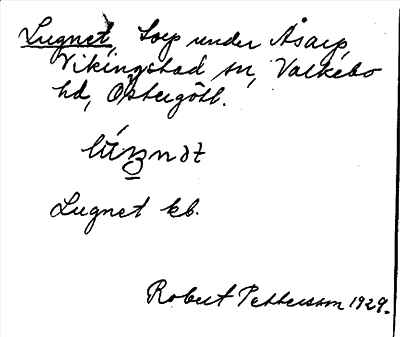 Lugnet, Torp under Åsarp,
Vikingstad sn, Valkebo
hd, Östergötl.
Lugnet kb.
Robert Pettersson 1929.